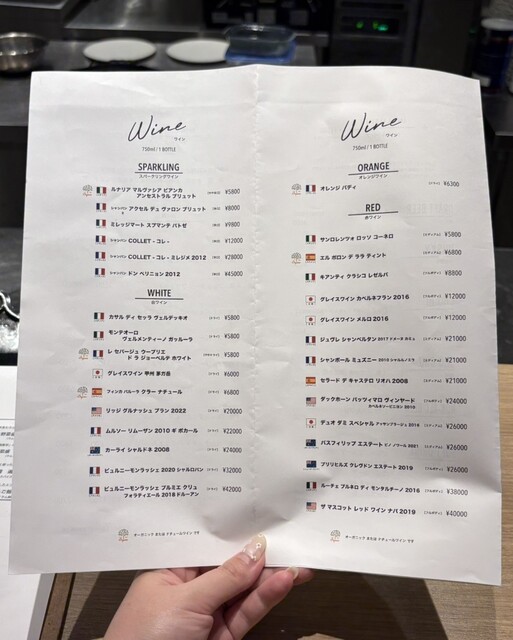 Wine
ワイン
750ml / 1 BOTTLE
SPARKLING
スパークリングワイン
ルナリア マルヴァジア ビアンカ
アンセストラル ブリュット ¥5800
シャンパン アクセル デュ ヴァロン ブリュット ¥8000
ミレッジマート スプマンテ パトゼ ¥9800
シャンパン COLLET - コレ - ¥12000
シャンパン COLLET - コレ - ミレジメ 2012 ¥28000
シャンパン ドン ペリニョン 2012 ¥45000
WHITE
白ワイン
カサル ディ セッラ ヴェルデッキオ ¥5800
モンテオーロ
ヴェルメンティーノ ガッルーラ ¥5800
レ セパージュ ウーブリエ
ド ラ ジョーベルテ ホワイト ¥5800
グレイスワイン 甲州 茅ヶ岳 ¥6000
フィンカ バルーラ クラー ナチュール ¥6800
リッジ グルナッシュ ブラン 2022 ¥20000
ムルソー リムーザン 2010 ギ ボカール ¥22000
カーライ シャルドネ 2008 ¥24000
ピュルニーモンラッシェ 2020 シャルロパン ¥32000
ピュルニーモンラッシェ プルミエ クリュ
フォラティエール 2016 ドルーアン ¥42000
オーガニック または ナチュールワイン です
Wine
ワイン
750ml / 1 BOTTLE
ORANGE
オレンジワイン
オレンジ バディ ¥6300
RED
赤ワイン
サンロレンツォ ロッソ コーネロ ¥5800
エル ボロン デ ララ ティント ¥6800
キアンティ クラシコ レゼルバ ¥8800
グレイスワイン カベルネフラン 2016 ¥12000
グレイスワイン メルロ 2016 ¥12000
ジュヴレ シャンベルタン 2017 ¥21000
シャンボール ミュズニー 2013 ¥21000
セラード デ キャステロ リオハ 2008 ¥21000
ダックホーン パッツィマロ ヴィンヤード
カベルネソーヴィニヨン 2010 ¥24000
デュオ ダミ スペシャル 2016 ¥26000
パスフィリップ エステート ピノ ノワール 2021 ¥26000
プリヒルズ クレヴドン エステート 2019 ¥26000
ルーチェ ブルネロ ディ モンタルチーノ 2016 ¥38000
ザ マスコット レッド ワイン ナパ 2019 ¥40000
オーガニック または ナチュールワイン です